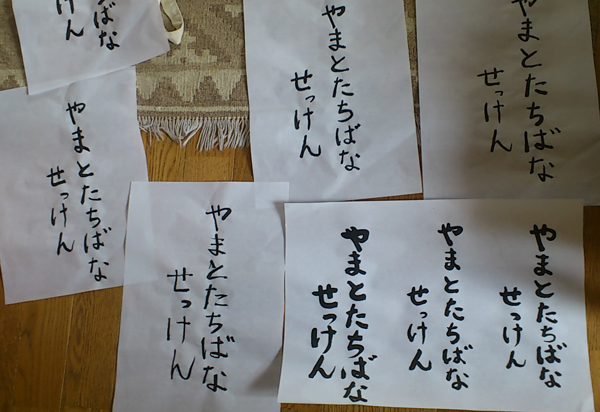 ばな
けん
やまとたちばな
せっけん
やまとたちばな
せっけん
やまとたちばな
せっけん
やまとたちばな
せっけん
やまとたちばな
せっけん
やまとたちばな
せっけん
やまとたちばな
せっけん